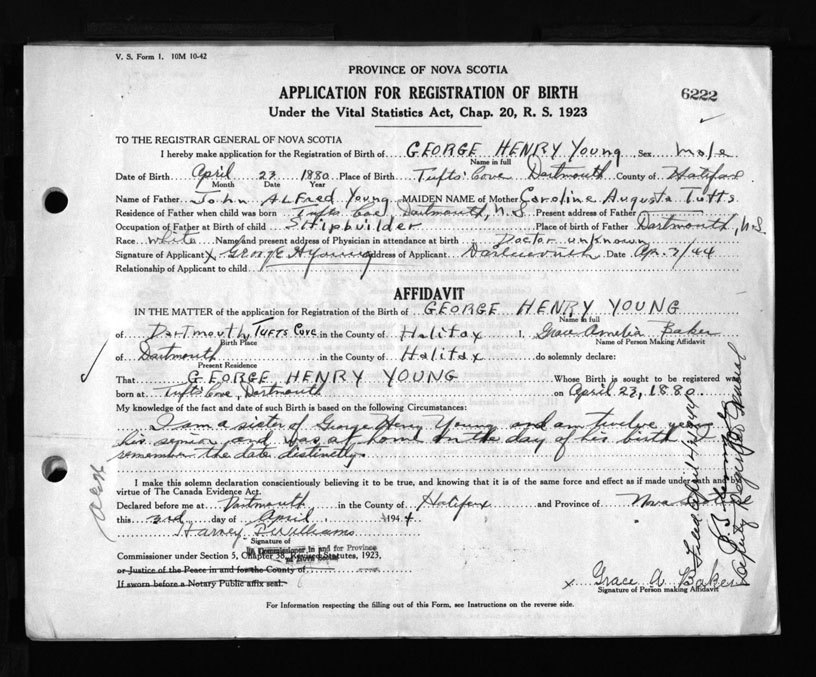 V. S. Form 1. 10M 10-42
PROVINCE OF NOVA SCOTIA
APPLICATION FOR REGISTRATION OF BIRTH
6222
Under the Vital Statistics Act, Chap. 20, R. S. 1923
TO THE REGISTRAR GENERAL OF NOVA SCOTIA
I hereby make application for the Registration of Birth of GEORGE HENRY Young Sex male
Name in full
Date of Birth April 23 1880 Place of Birth Tufts Cove Dartmouth County of Halifax
Month Date Year
Name of Father John ALFred Young MAIDEN NAME of Mother Caroline Augusta Tufts
Residence of Father when child was born Tufts Cove, Dartmouth, N.S. Present address of Father
Occupation of Father at Birth of child SHipbuilder Place of birth of Father Dartmouth, N.S.
Race white Name and present address of Physician in attendance at birth Doctor unknown
Signature of Applicant x George H Young Address of Applicant Dartmouth Date Ap. 3/44
Relationship of Applicant to child
AFFIDAVIT
IN THE MATTER of the application for Registration of the Birth of GEORGE HENRY YOUNG
Name in full
of Dartmouth, TUFTS COVE in the County of Halifax I, Grace Amelia Baker
Birth Place Name of Person Making Affidavit
of Dartmouth in the County of Halifax do solemnly declare:
Present Residence
That GEORGE HENRY YOUNG Whose Birth is sought to be registered was
born at Tufts Cove, Dartmouth on April 23, 1880
My knowledge of the fact and date of such Birth is based on the following Circumstances:
I am a sister of George Henry Young and am twelve years
his senior and was at home on the day of his birth I
remember the date distinctly.
I make this solemn declaration conscientiously believing it to be true, and knowing that it is of the same force and effect as if made under oath and by
virtue of The Canada Evidence Act.
Declared before me at Dartmouth in the County of Halifax and Province of Nova Scotia
this 3rd day of April 1944
Harvey Williams
Signature of
A Commissioner in and for Province
of Nova Scotia
Commissioner under Section 5, Chapter 38, Revised Statutes, 1923,
or Justice of the Peace in and for the County of
If sworn before a Notary Public affix seal.
x Grace A Baker
Signature of Person making Affidavit
For Information respecting the filling out of this Form, see Instructions on the reverse side.
Filed April 4/1944
Deputy Registrar General